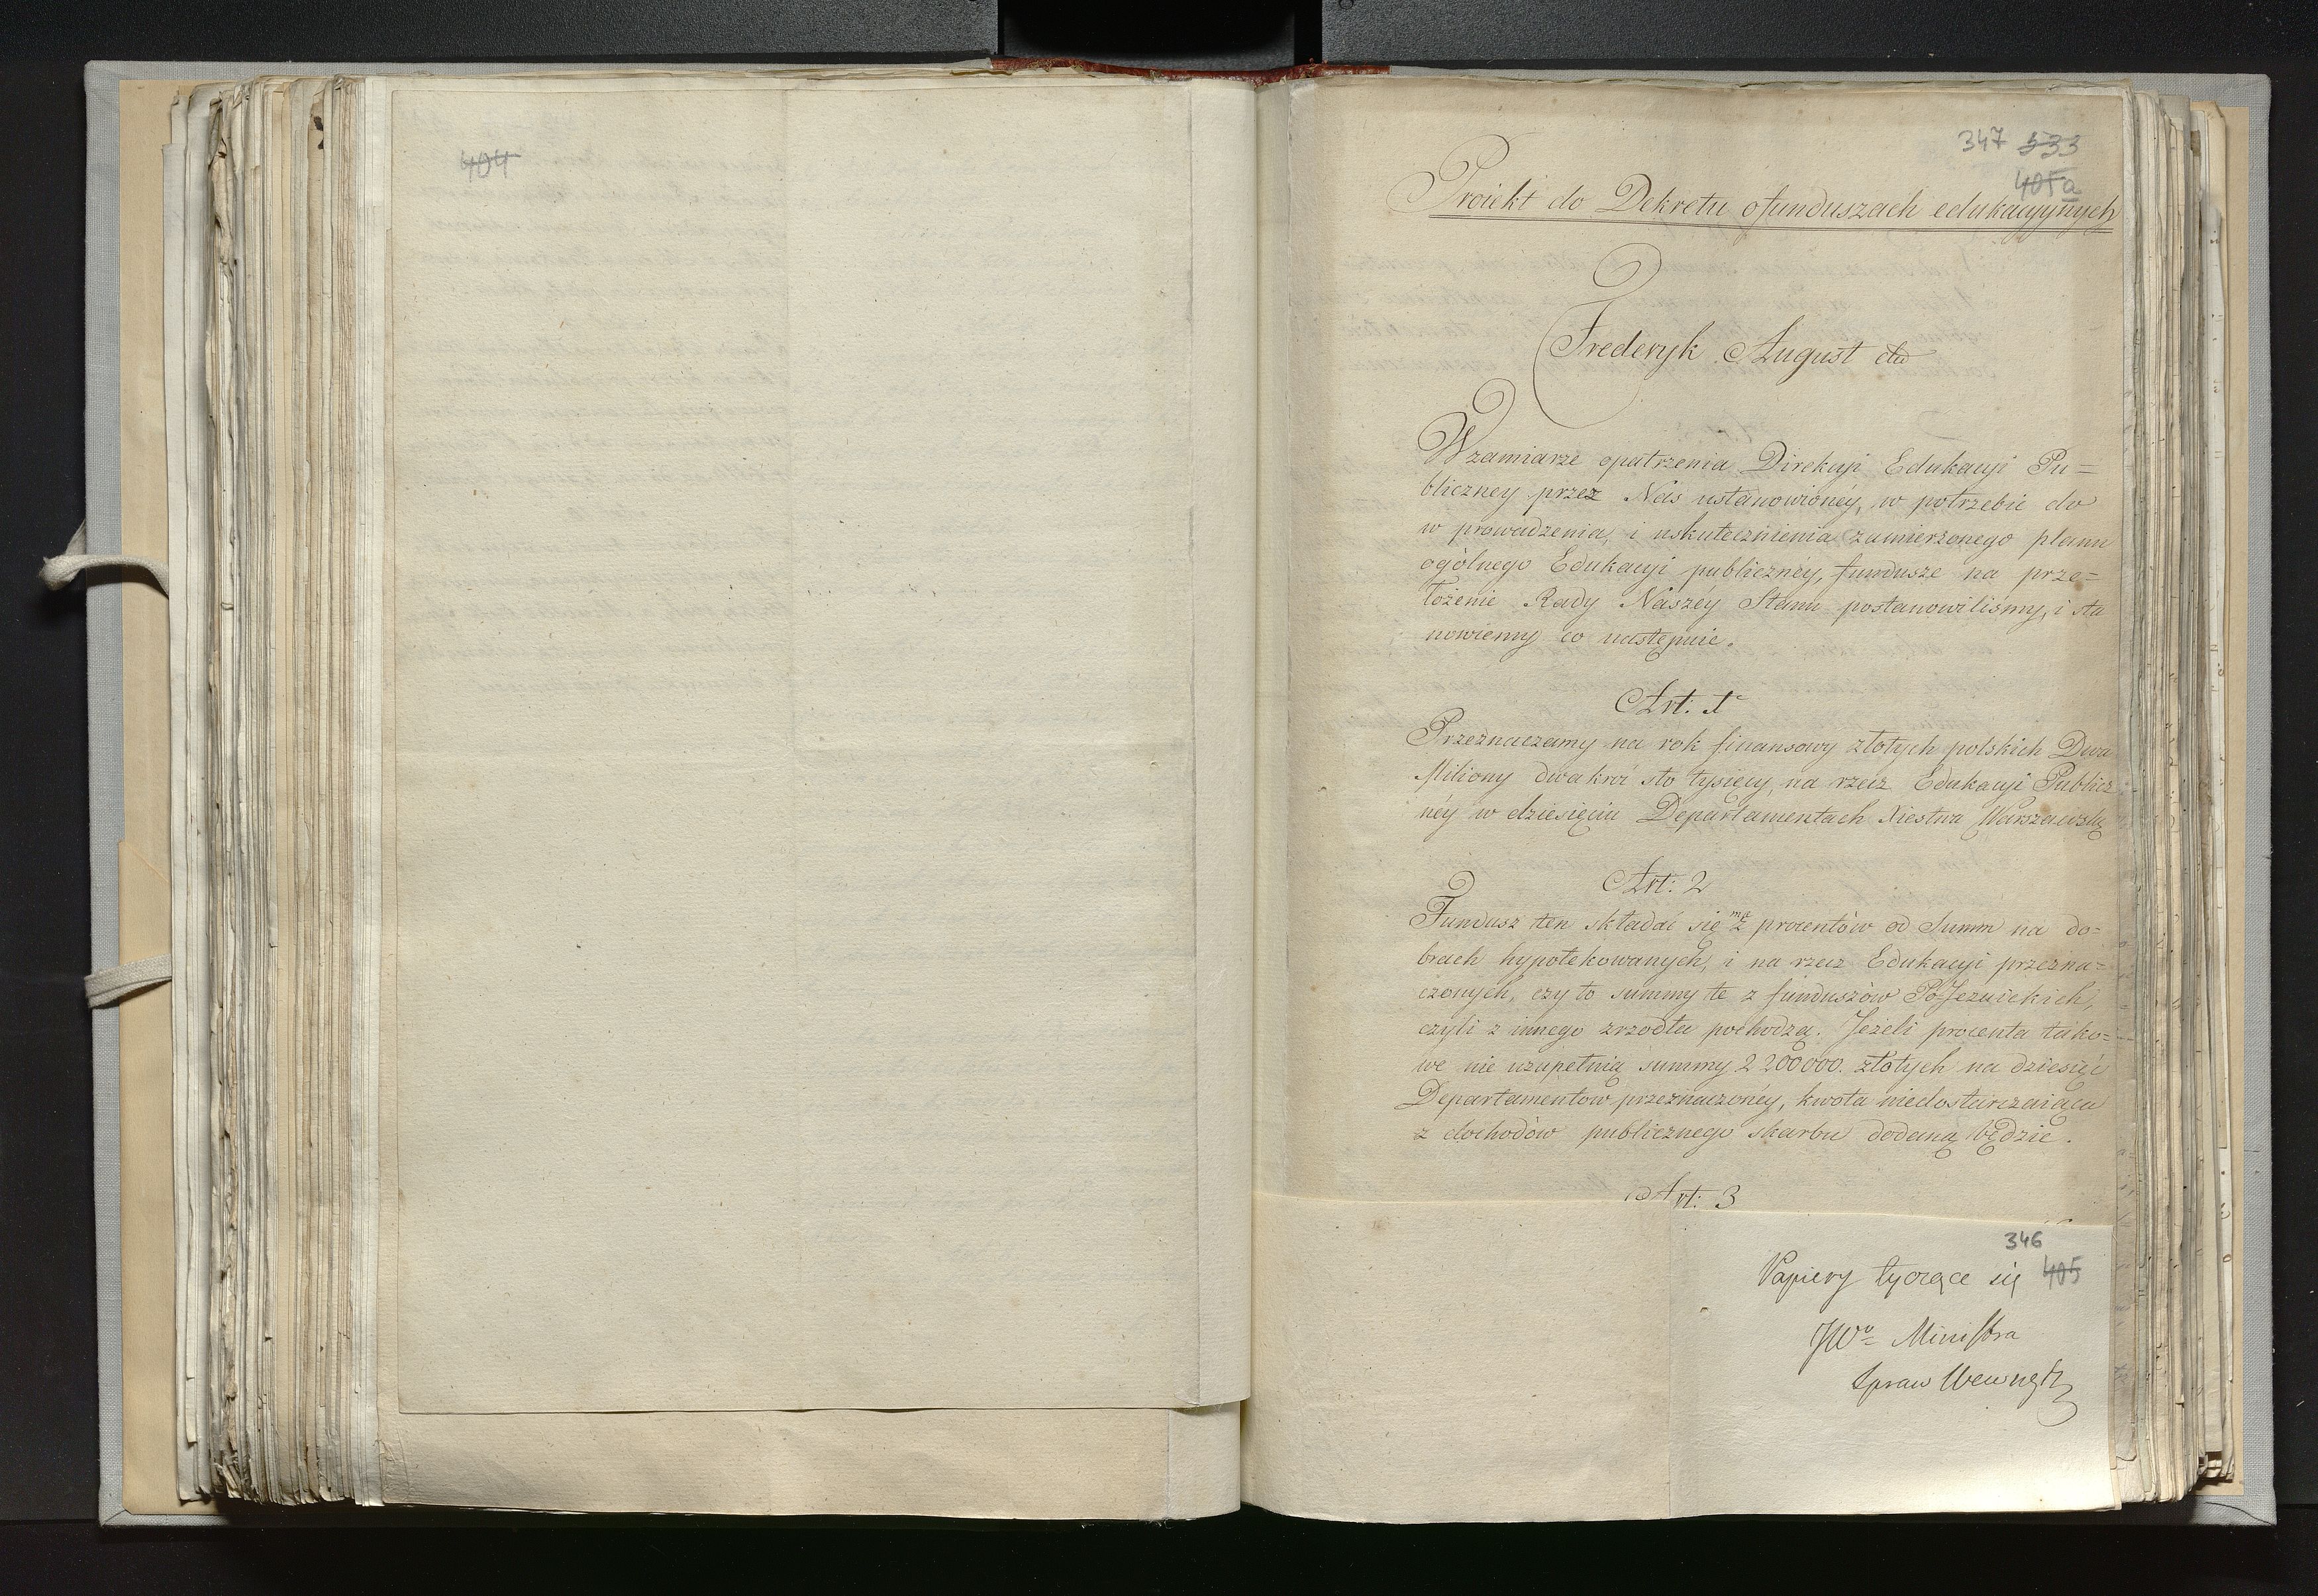 404
347 533
405a
Proiekt do Dekretu o funduszach edukacyjnych
Frederyk August etc
W zamiarze opatrzenia Direkcyi Edukacyi Pu=
bliczney przez Nas ustanowionéy, w potrzebie do
w prowadzenia, i uskutecznienia zamierzonego planu
ogólnego Edukacyi publicznéy, fundusze na prze=
łożenie Rady Naszéy Stanu postanowilismy, i sta
nowiemy co następuie.
Art: 1
Przeznaczamy na rok finansowy złotych polskich Dwa
Miliony dwa kroć sto tysięcy, na rzecz Edukacyi Publicz
néy w dziesięciu Departamentach Xiestwa Warszawskg
Art: 2
Fundusz ten składać się ma z procentów od Summ na do=
brach hypotekowanych, i na rzecz Edukacyi przezna=
czonych, czy to summy te z funduszów Po-Jezuickich,
czyli z innego zrzodła pochodzą. Jeżeli procenta tako=
we nie uzupełnią summy 2 200 000. złotych na dziesięć
Departamentow przeznaczonéy, kwota niedostarczaiąca
z dochodów publicznego skarbu dodaną będzie.
Art: 3
346
Papiery tyczące się 405
JWo Ministra
Spraw Wewnętz